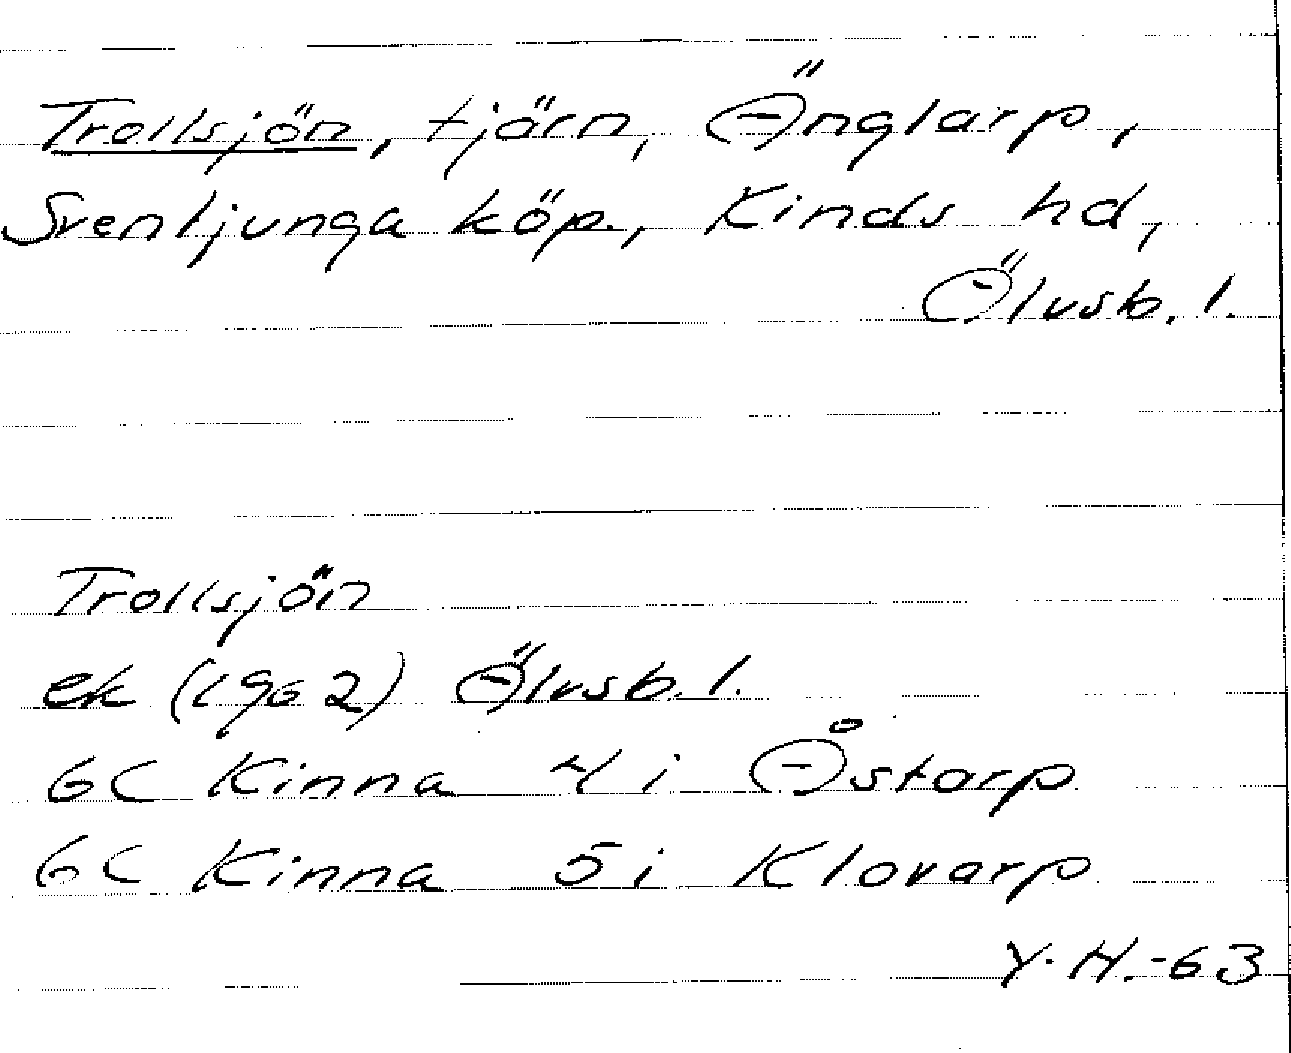 Trollsjön, tjärn, Änglarp,
Svenljunga köp., Kinds hd,
Älvsb. l.
Trollsjön
ek (1962) Älvsb. l.
6C Kinna 4i Åstarp
6C Kinna 5i Klovarp
Y. H. -63